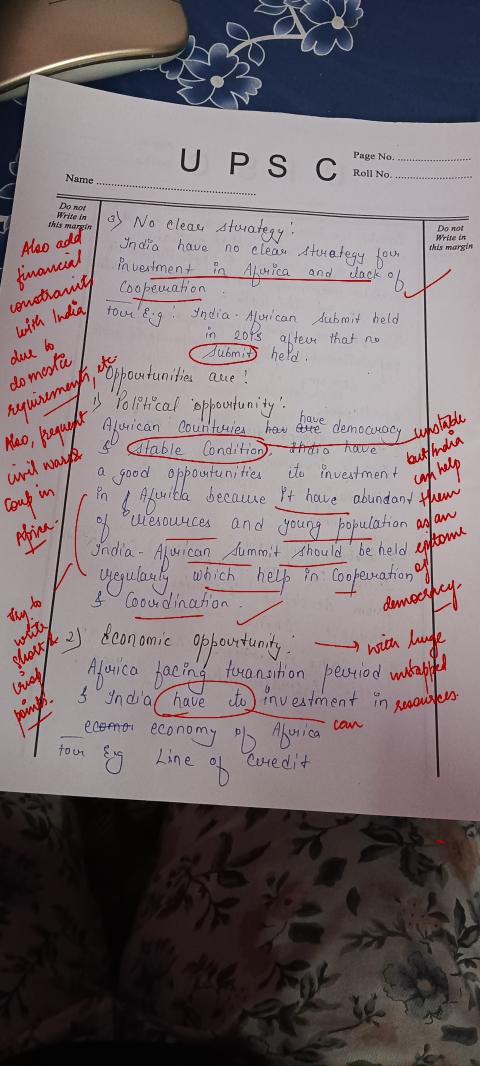 UPSC
Page No. ..............................
Roll No. ..............................
Name ............................................................
Do not
Write in
this margin
Do not
Write in
this margin
a) No clear strategy:
India have no clear strategy for
investment in Africa and lack of
Cooperation.
for E.g: India-African Submit held
in 2015 after that no
Submit held.
Opportunities are:
1) Political opportunity:
African Countries have democracy
& stable Condition, India have
a good opportunities to investment
in Africa because it have abundant
of resources and young population
India-African Summit should be held
regularly which help in Cooperation
& Coordination.
2) Economic opportunity:
Africa facing transition period
& India have to investment in
economy of Africa
for Eg Line of Credit
Also add
financial
constraints
with India
due to
domestic
requirements, etc
Also, frequent
civil wars,
Coup in
Africa.
Try to
write
short &
crisp
points.
unstable
but India
can help
them
as an
epitome
of
democracy.
→ with huge
untapped
resources.
can